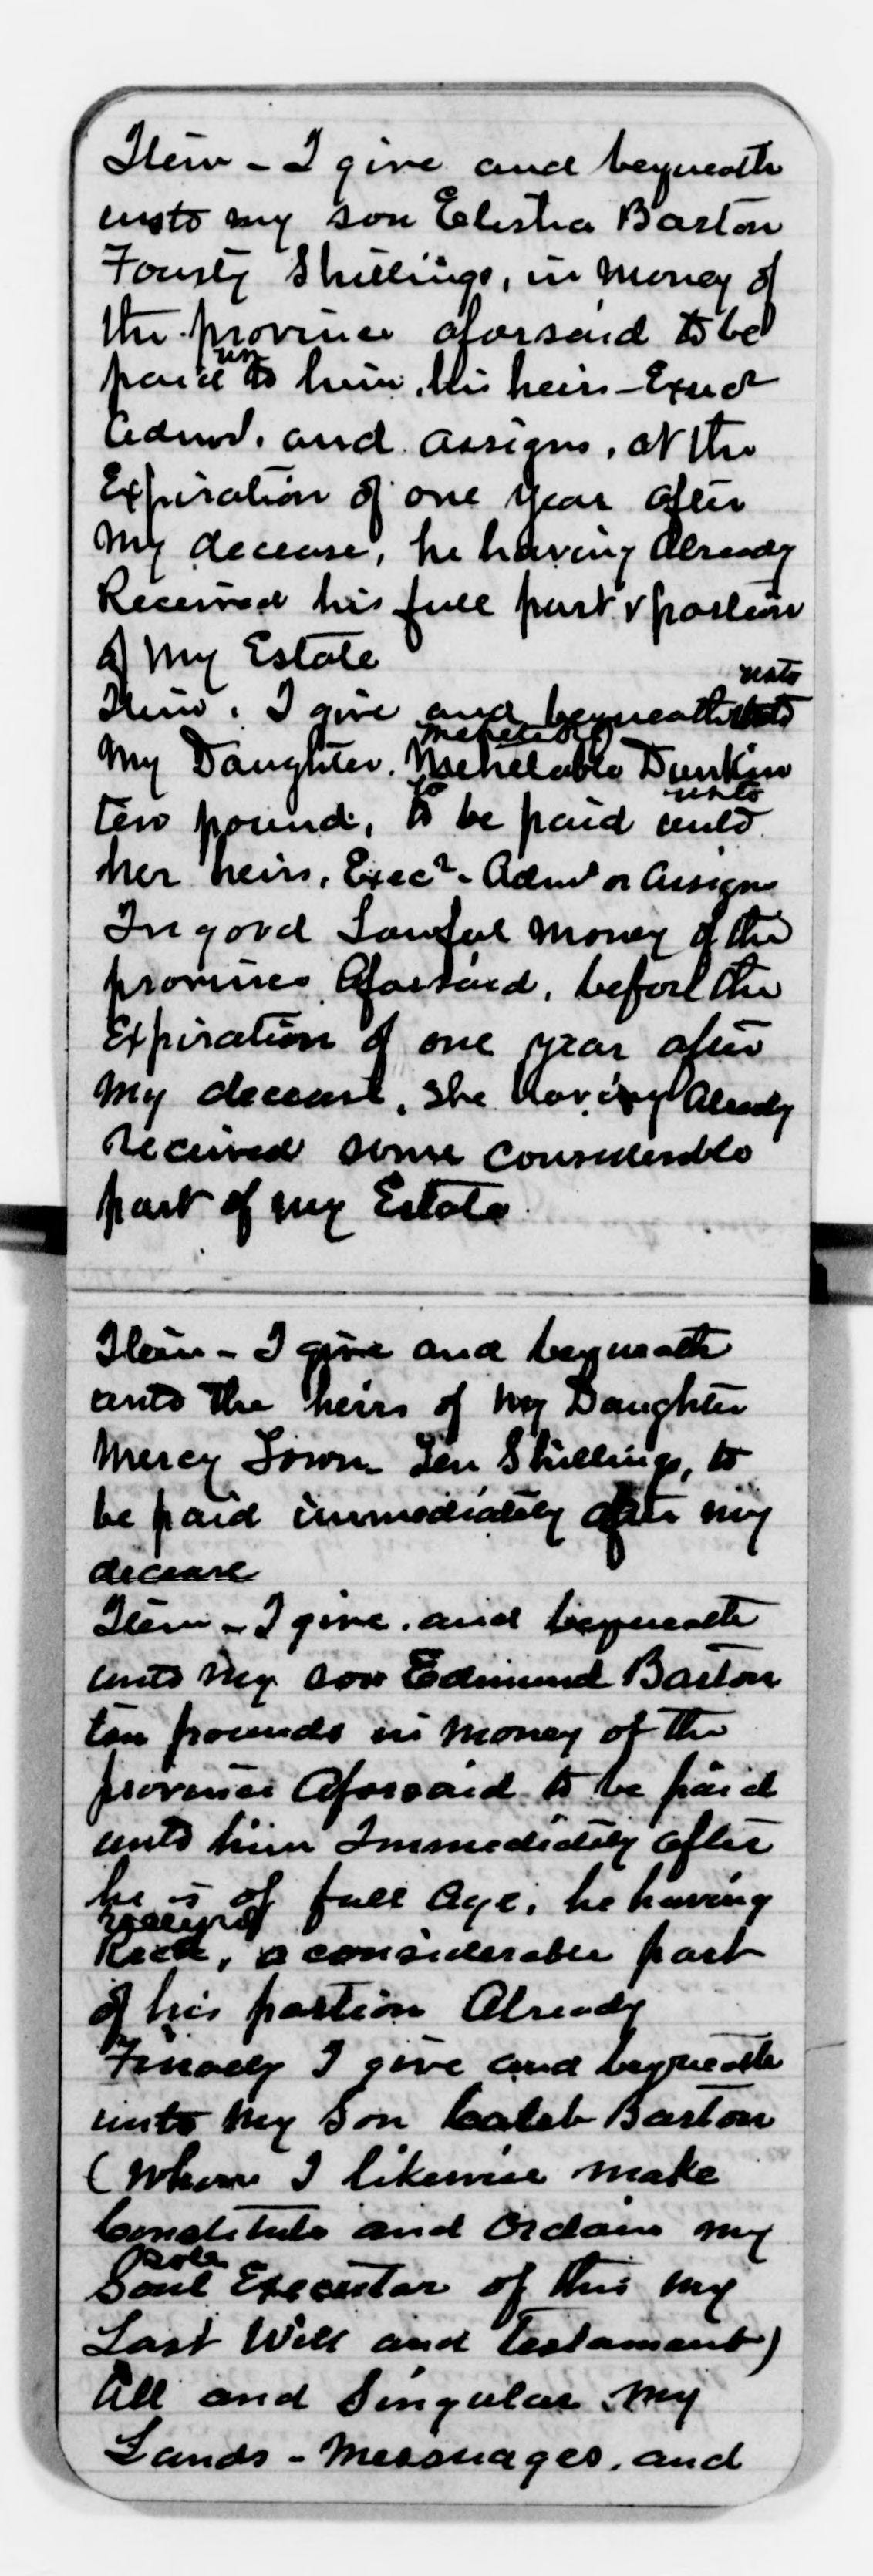 Item - I give and bequeath
unto my son Elisha Barton
Fourty Shillings, in money of
the province aforsaid to be
un
paid to him, his heirs - Execr
Admr. and assigns, at the
Expiration of one year after
My decease, he having Already
Received his full part & portion
of My Estate
unto
Item. I give and bequeath unto
Mehetable
My Daughter. Mehetable Dunkin
ten pound, to be paid unto
to unto
her heirs, Execr. Admr or Assigns
In good Lawful Money of the
province Aforsaid, before the
Expiration of one year after
My decease, she having Already
received some considerable
part of my Estate.
Item - I give and bequeath
unto the heirs of my Daughter
Mercy Town - Ten Shillings, to
be paid immediately after my
decease
Item - I give and bequeath
unto my son Edmund Barton
ten pounds in money of the
province Aforsaid to be paid
unto him Immediately after
he is of full Age, he having
received
Recd, a considerable part
of his portion Already
Finaly I give and bequeath
unto My Son Caleb Barton
(Whom I likewise make
Constitute and Ordain my
Sole
Soul Executor of this my
Last Will and Testament)
All and Singular My
Lands - Messuages, and